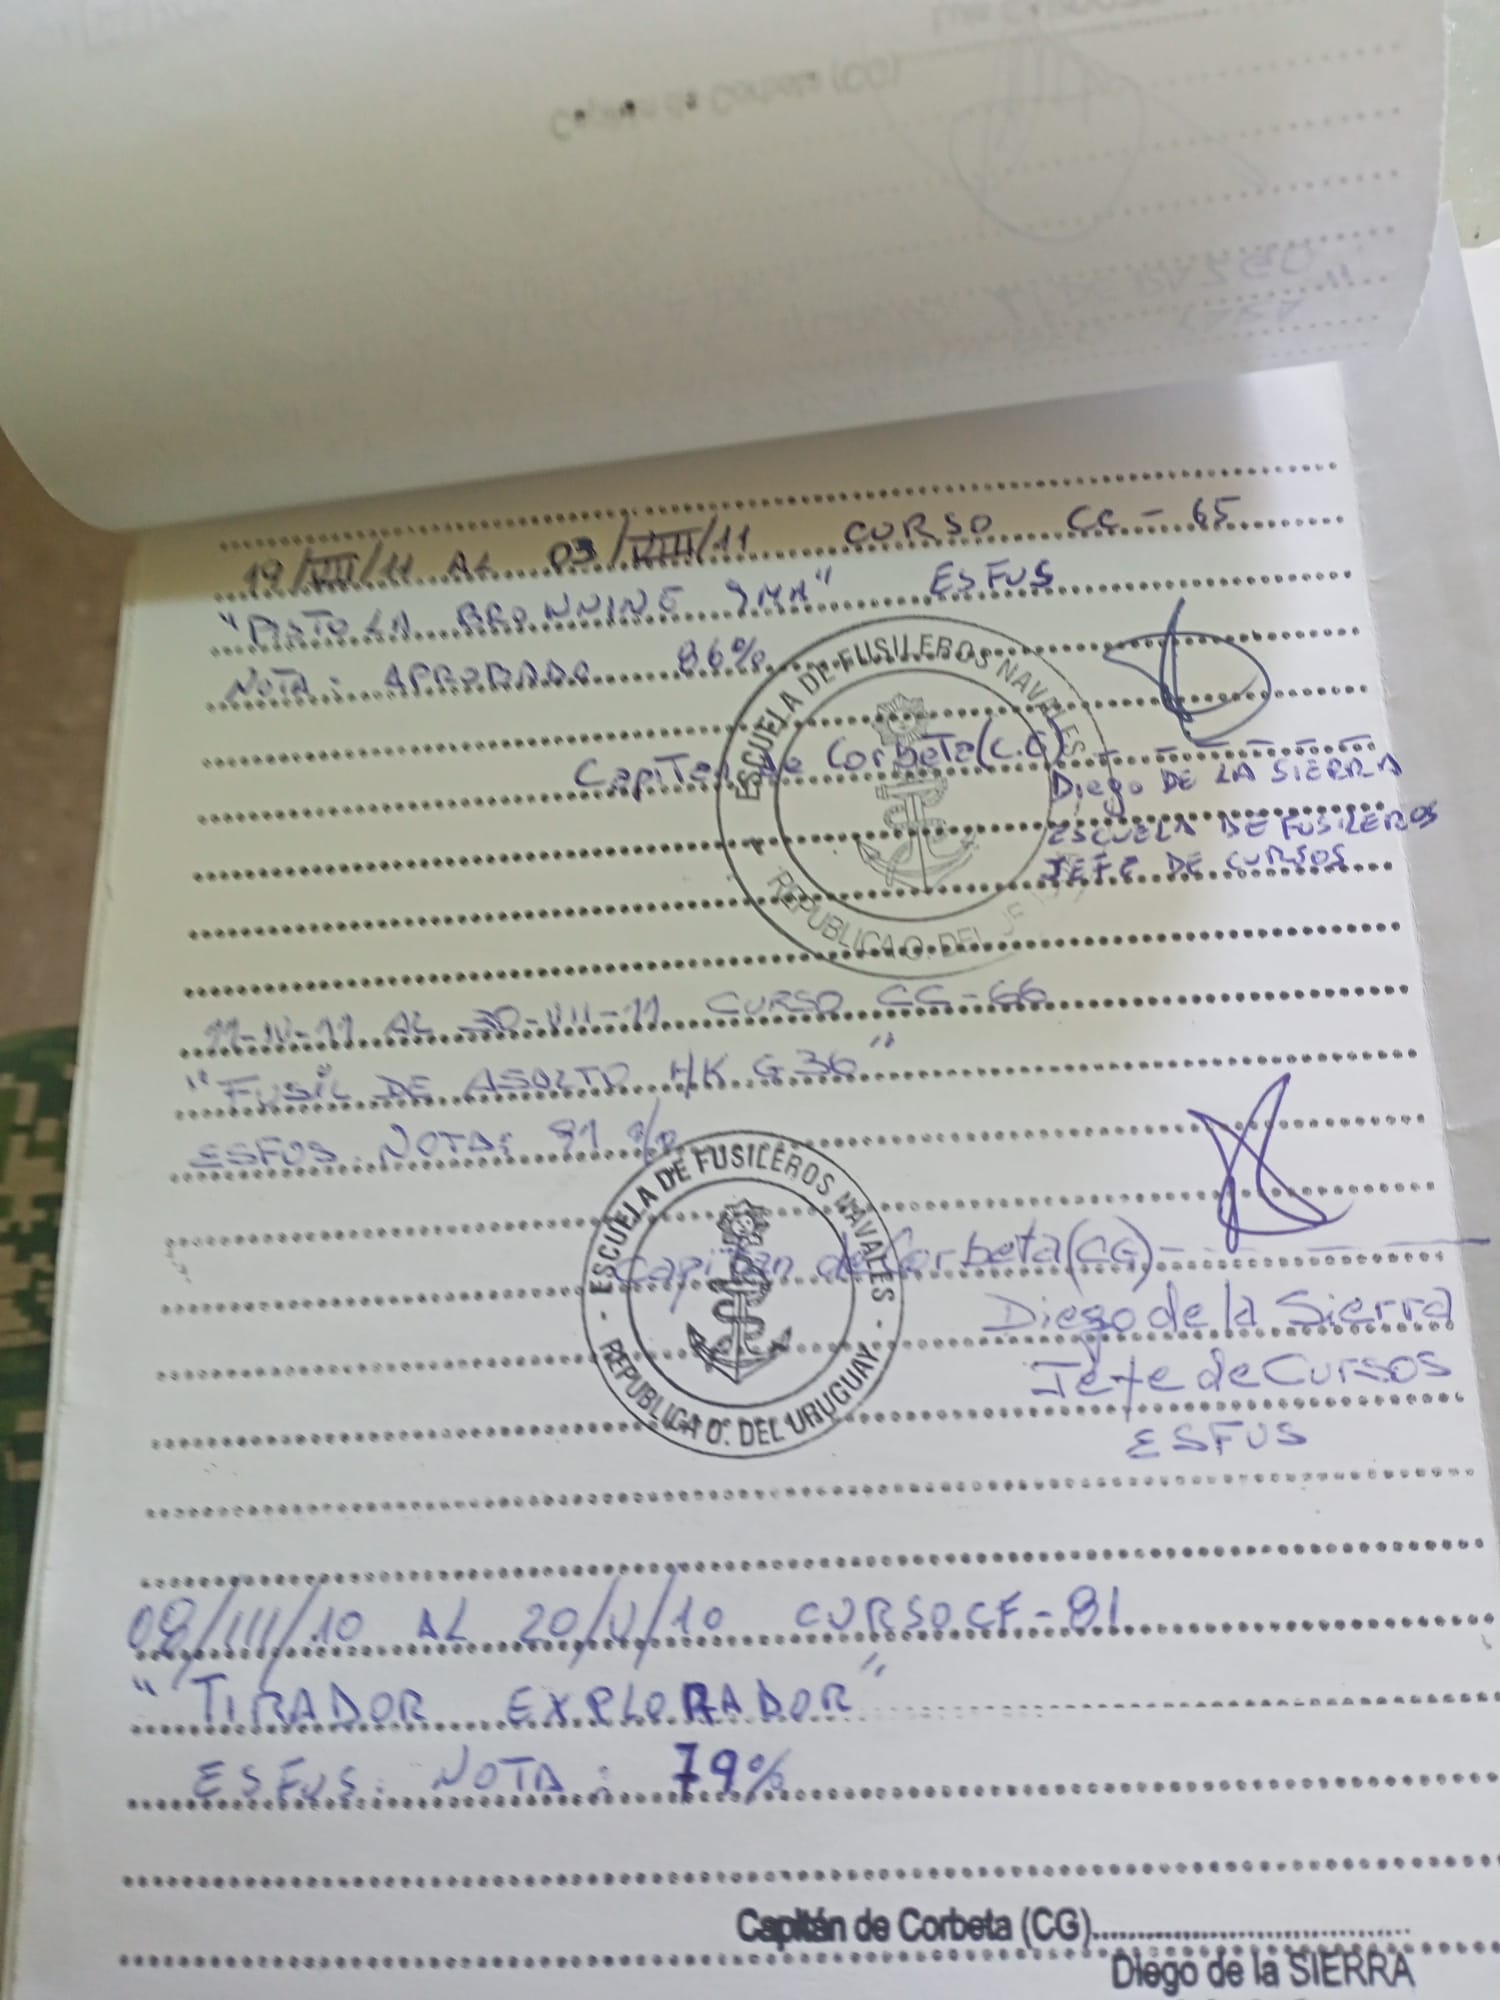 Capitán de Corbeta (CG)
19/VII/11 AL 03/VIII/11 CURSO CC-65
"PISTOLA BROWNING 9MM" ESFUS
NOTA: APROBADO 86%
ESCUELA DE FUSILEROS NAVALES
REPUBLICA O. DEL
Capitan de Corbeta (C.G)
Diego DE LA SIERRA
ESCUELA DE FUSILEROS
JEFE DE CURSOS
11-IV-11 AL 30-VII-11 CURSO CC-66
"FUSIL DE ASALTO H/K G36"
ESFUS. NOTA: 91%
ESCUELA DE FUSILEROS NAVALES
- REPUBLICA O. DEL URUGUAY -
Capitan de Corbeta (CG)
Diego de la Sierra
Jefe de Cursos
ESFUS
08/III/10 AL 20/V/10 CURSO CF-81
"TIRADOR EXPLORADOR"
ESFUS. NOTA: 79%
Capitán de Corbeta (CG)
Diego de la SIERRA